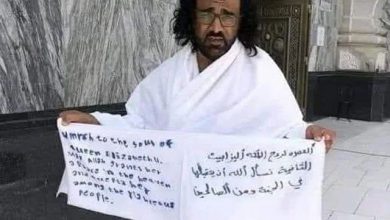 Umrah to the soul of
Queen Elizabeth II,
May Allah grant her
a place in the heaven
and accepts her
among the righteous
people.
العمره لروح الملكه اليزابيث
الثانية نسأل الله ان يتقبلها
في الجنة ومن الصالحين